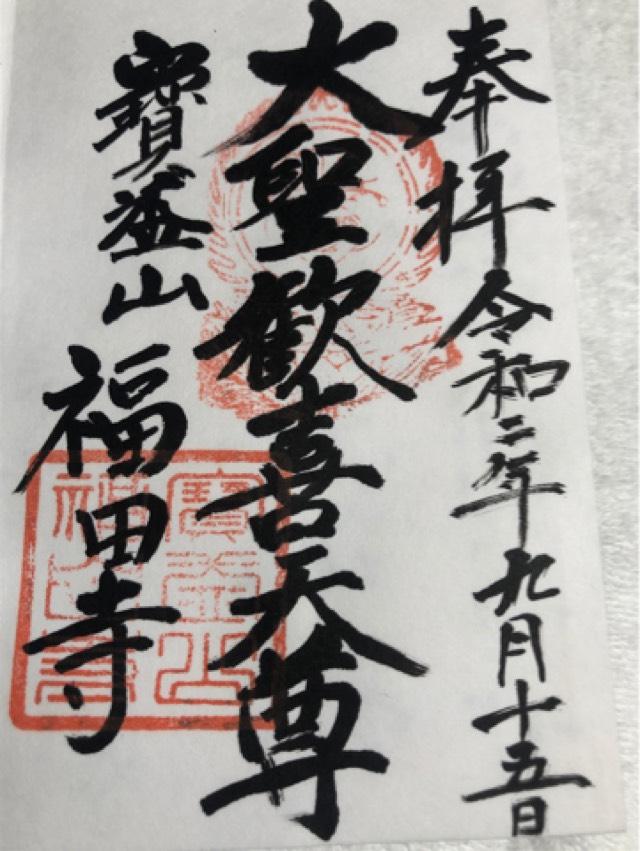 奉拝 令和二年九月十五日
大聖歓喜天尊
寶益山 福田寺
寶益山
福田寺